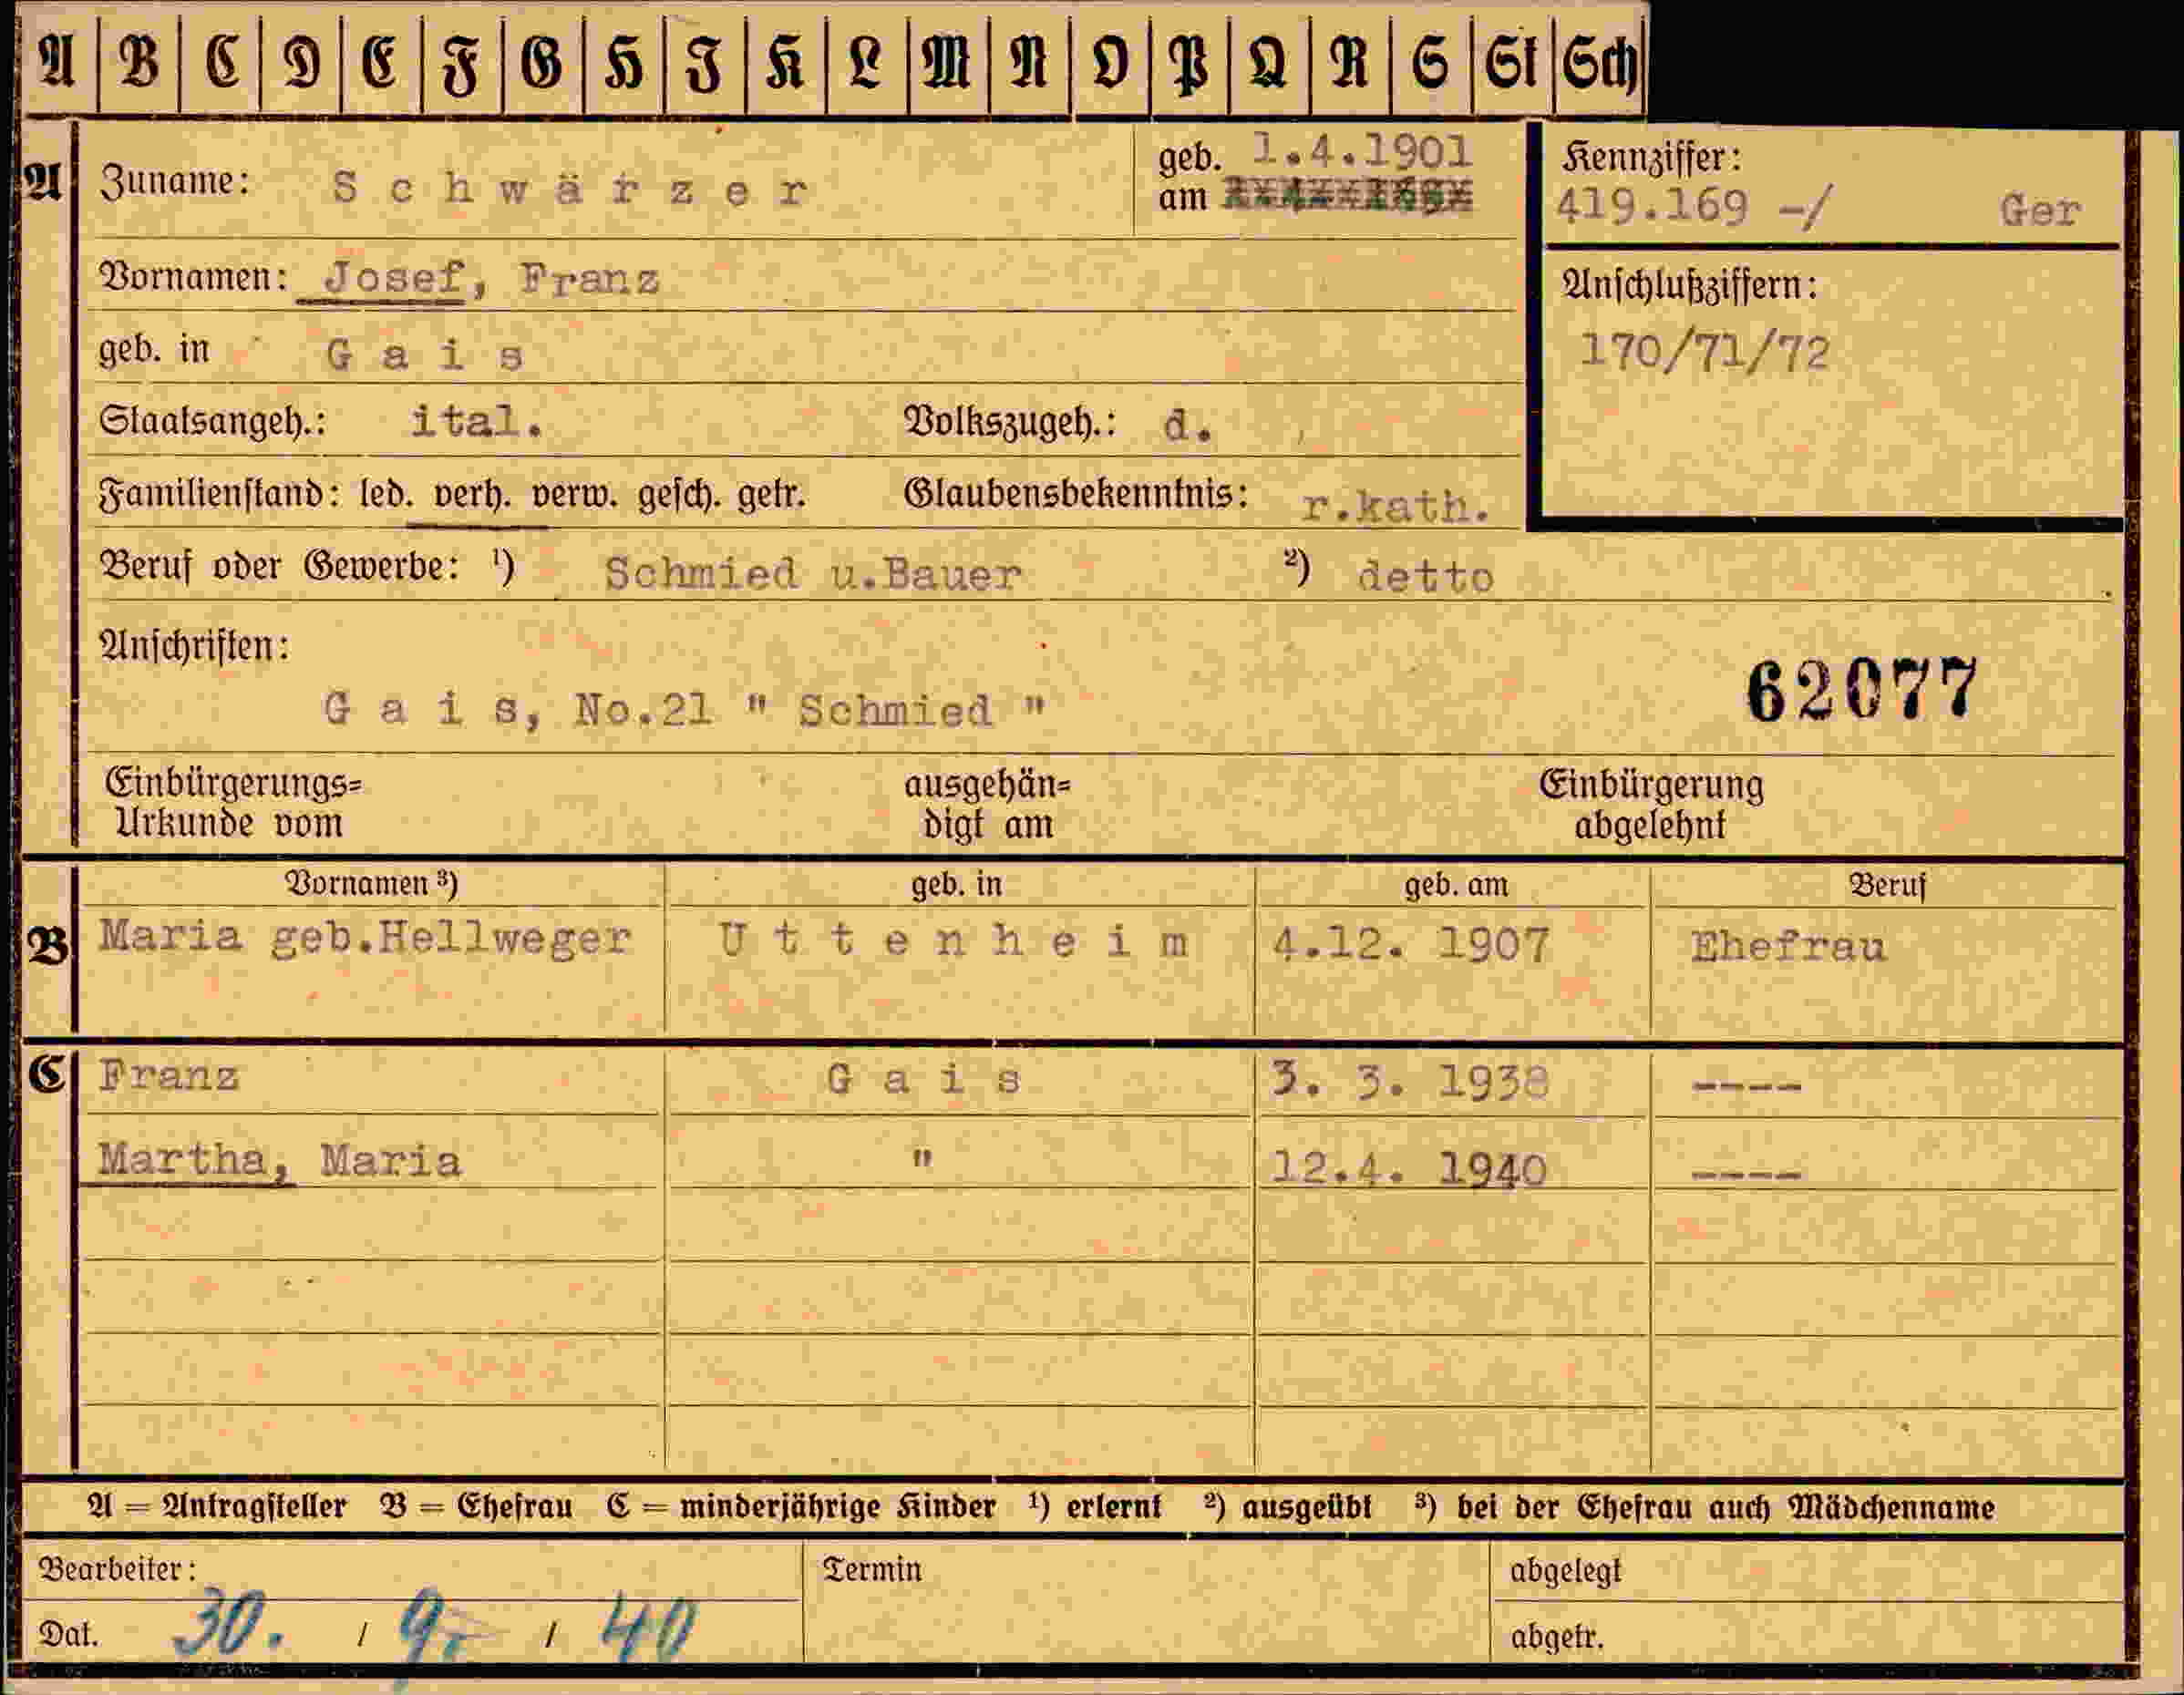 A B C D E F G H I K L M N O P Q R S St Sch
A Zuname: Schwärzer geb. am 1.4.1901
Kennziffer: 419.169 -/ Ger
Vornamen: Josef, Franz
Anschlußziffern:
geb. in Gais
170/71/72
Staatsangeh.: ital. Volkszugeh.: d.
Familienstand: led. verh. verw. gesch. getr. Glaubensbekenntnis: r.kath.
Beruf oder Gewerbe: ¹) Schmied u.Bauer ²) detto
Anschriften:
Gais, No.21 " Schmied "
62077
Einbürgerungs= Urkunde vom ausgehän= digt am Einbürgerung abgelehnt
Vornamen ³) geb. in geb. am Beruf
B Maria geb.Hellweger Uttenheim 4.12. 1907 Ehefrau
C Franz Gais 3. 3. 1938 ----
Martha, Maria " 12.4. 1940 ----
A = Antragsteller B = Ehefrau C = minderjährige Kinder ¹) erlernt ²) ausgeübt ³) bei der Ehefrau auch Mädchenname
Bearbeiter: Termin abgelegt
Dat. 30. / 9. / 40 abgetr.